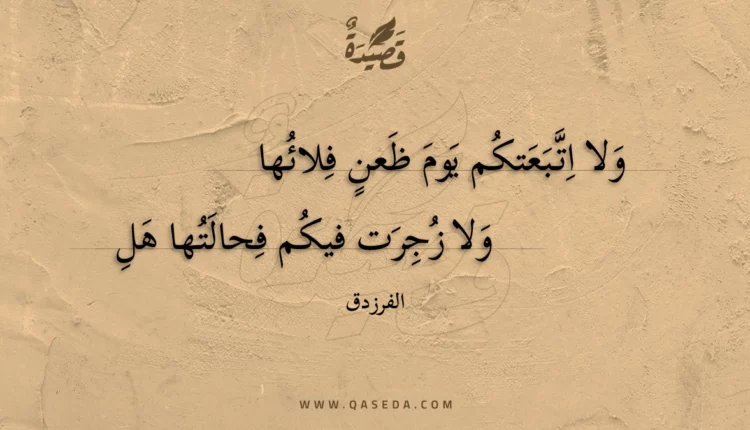 قَصِيدَةٌ
وَلا اِتَّبَعَتكُم يَومَ ظَعنٍ فِلائُها
وَلا زُجِرَت فيكُم فِحالَتُها هَلِ
الفرزدق
WWW.QASEDA.COM